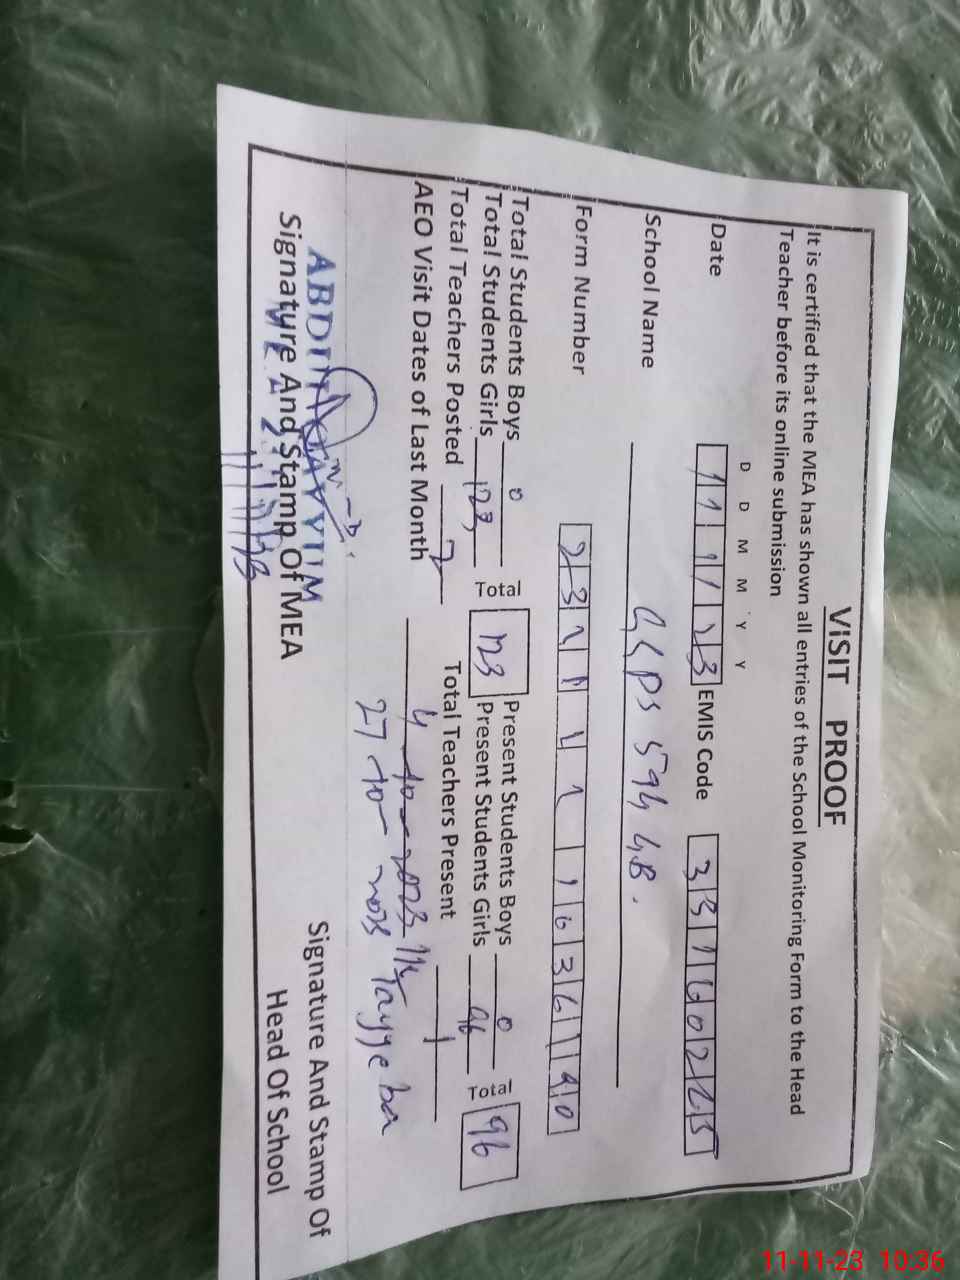 VISIT PROOF
It is certified that the MEA has shown all entries of the School Monitoring Form to the Head
Teacher before its online submission
D D M M Y Y
Date 11 11 23 EMIS Code 33160225
School Name GGPS 594 GB.
Form Number
Total Students Boys 0 Total 123 Present Students Boys 0 Total 96
Total Students Girls 123 Present Students Girls 96
Total Teachers Posted 2 Total Teachers Present 1
AEO Visit Dates of Last Month 4-10-2023
27-10-2023 Tayyeba
ABDUL QAYYUM
Signature And Stamp Of MEA
Signature And Stamp Of
Head Of School
11-11-23 10:36